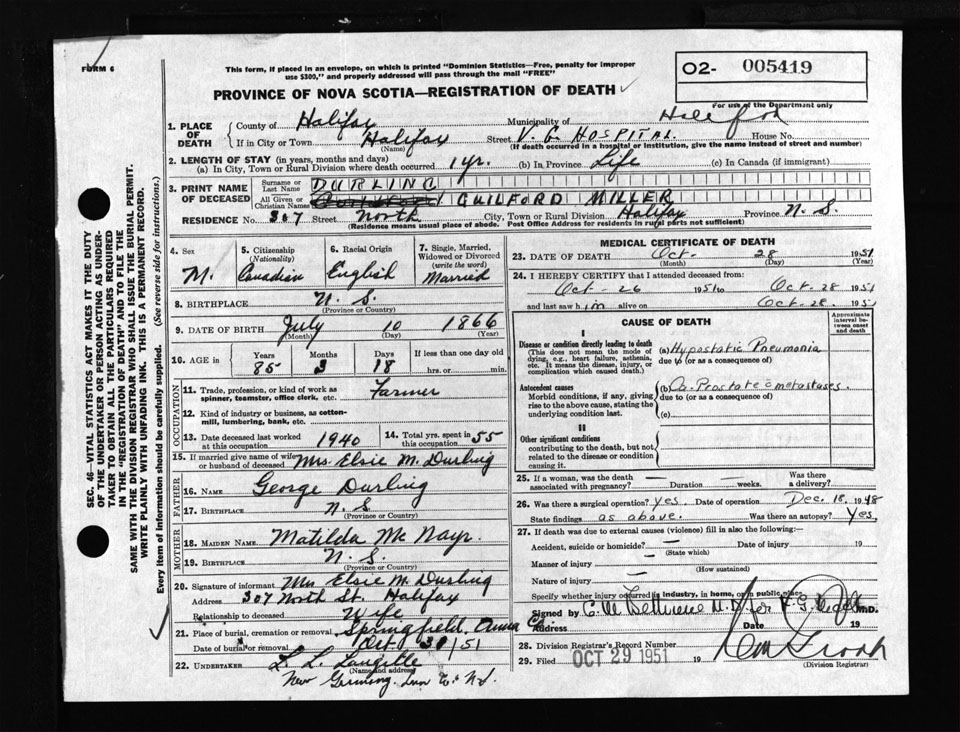 FORM 6
This form, if placed in an envelope, on which is printed "Dominion Statistics—Free, penalty for improper
use $300," and properly addressed will pass through the mail "FREE"
O2- 005419
PROVINCE OF NOVA SCOTIA—REGISTRATION OF DEATH ✓
For use of the Department only
1. PLACE OF DEATH
County of Halifax Municipality of Halifax
If in City or Town Halifax Street V. G. HOSPITAL. House No.
(Name) (If death occurred in a hospital or Institution, give the name instead of street and number)
2. LENGTH OF STAY (in years, months and days)
(a) In City, Town or Rural Division where death occurred 1 yr. (b) In Province Life (c) In Canada (if immigrant)
3. PRINT NAME OF DECEASED
Surname or Last Name DURLING
All Given or Christian Names GUILFORD MILLER
RESIDENCE No. 307 Street North City, Town or Rural Division Halifax Province N. S.
(Residence means usual place of abode. Post Office Address for residents in rural parts not sufficient)
4. Sex M.
5. Citizenship (Nationality) Canadian
6. Racial Origin English
7. Single, Married, Widowed or Divorced (write the word) Married
8. BIRTHPLACE N. S.
(Province or Country)
9. DATE OF BIRTH July 10 1866
(Month) (Day) (Year)
10. AGE in Years 85 Months 3 Days 18 If less than one day old
hrs. or min.
OCCUPATION
11. Trade, profession, or kind of work as spinner, teamster, office clerk, etc. Farmer
12. Kind of industry or business, as cotton-mill, lumbering, bank, etc.
13. Date deceased last worked at this occupation 1940 14. Total yrs. spent in this occupation 55
15. If married give name of wife or husband of deceased Mrs. Elsie M. Durling
FATHER
16. NAME George Durling
17. BIRTHPLACE N. S
(Province or Country)
MOTHER
18. MAIDEN NAME Matilda Mc Nayr.
19. BIRTHPLACE N. S
(Province or Country)
20. Signature of informant Mrs Elsie M. Durling
Address 307 North St. Halifax
Relationship to deceased Wife
21. Place of burial, cremation or removal Springfield, Anna Co
Date of burial or removal Oct 30/51
22. UNDERTAKER L. L. Langille
(Name and address)
New Germany, Lun Co. N.S.
MEDICAL CERTIFICATE OF DEATH
23. DATE OF DEATH Oct. 28 1951
(Month) (Day) (Year)
24. I HEREBY CERTIFY that I attended deceased from:
Oct-26 1951 to Oct-28 1951
and last saw him alive on Oct-28. 1951
CAUSE OF DEATH
Approximate interval between onset and death
I
Disease or condition directly leading to death
(This does not mean the mode of dying, e.g., heart failure, asthenia, etc. It means the disease, injury, or complication which caused death.)
(a) Hypostatic Pneumonia
due to (or as a consequence of)
Antecedent causes
Morbid conditions, if any, giving rise to the above cause, stating the underlying condition last.
(b) Ca-Prostate c metastases.
due to (or as a consequence of)
(c)
II
Other significant conditions
contributing to the death, but not related to the disease or condition causing it.
25. If a woman, was the death associated with pregnancy? — Duration — weeks. Was there a delivery? —
26. Was there a surgical operation? Yes. Date of operation Dec. 18. 1948
State findings as above. Was there an autopsy? Yes.
27. If death was due to external causes (violence) fill in also the following:—
Accident, suicide or homicide? — Date of injury 19
(State which)
Manner of injury —
(How sustained)
Nature of injury —
Specify whether injury occurred in Industry, in home, or in public place
Signed by M.D.
Address Date 19
28. Division Registrar's Record Number
29. Filed OCT 29 1951 19
(Division Registrar)
SEC. 46—VITAL STATISTICS ACT MAKES IT THE DUTY
OF THE UNDERTAKER OR PERSON ACTING AS UNDERTAKER
TO OBTAIN ALL THE PARTICULARS REQUIRED
IN THE "REGISTRATION OF DEATH" AND TO FILE THE
SAME WITH THE DIVISION REGISTRAR WHO SHALL ISSUE THE BURIAL PERMIT.
WRITE PLAINLY WITH UNFADING INK. THIS IS A PERMANENT RECORD.
Every item of information should be carefully supplied. (See reverse side for instructions.)